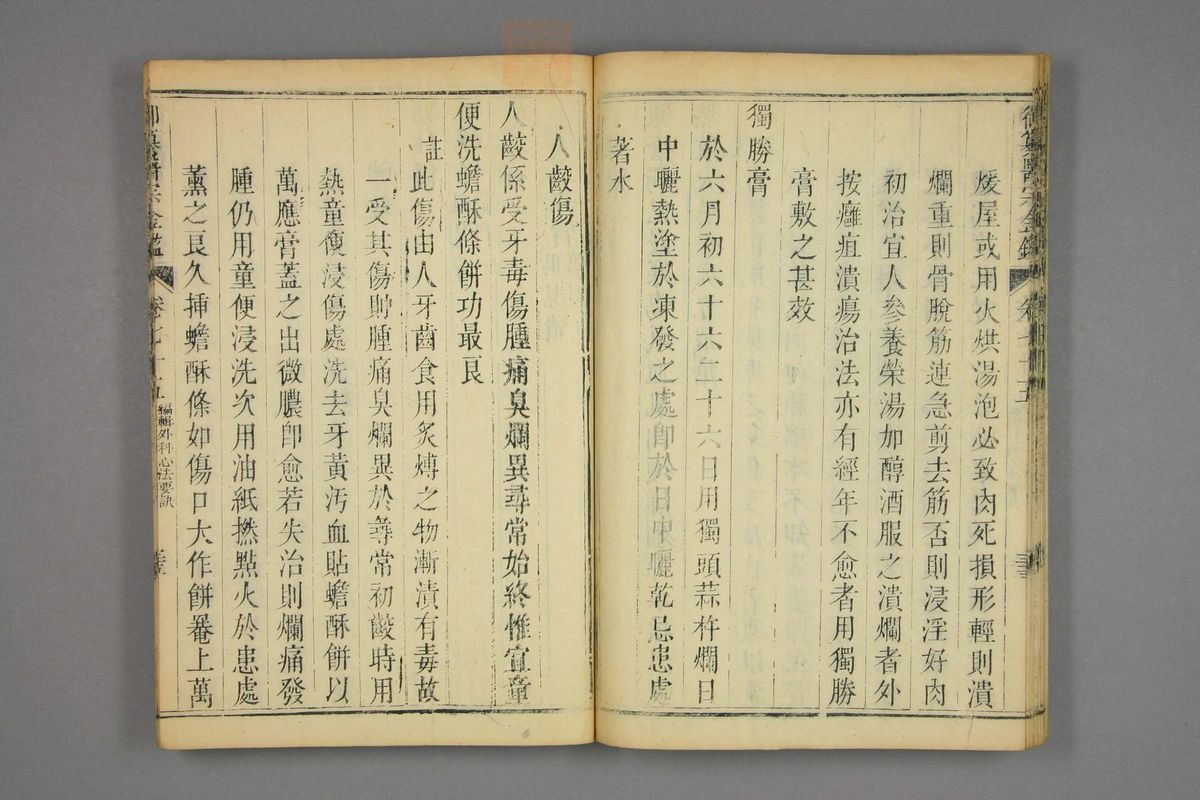 御纂醫宗金鑑 卷七十五
煖屋或用火烘湯泡必致肉死損形輕則潰
爛重則骨脫筋連急剪去筋否則浸淫好肉
初治宜人參養榮湯加醇酒服之潰爛者外
按癰疽潰瘍治法亦有經年不愈者用獨勝
膏敷之甚效
獨勝膏
於六月初六十六二十六日用獨頭蒜杵爛日
中曬熱塗於凍發之處即於日中曬乾忌患處
著水
人齩傷
人齩係受牙毒傷腫痛臭爛異尋常始終惟宜童
便洗蟾酥條餅功最良
註此傷由人牙齒食用炙煿之物漸漬有毒故
一受其傷貯腫痛臭爛異於尋常初齩時用
熱童便浸傷處洗去牙黃汚血貼蟾酥餅以
萬應膏蓋之出微膿即愈若失治則爛痛發
腫仍用童便浸洗次用油紙撚點火於患處
薰之良久揷蟾酥條如傷口大作餅罨上萬
御纂醫宗金鑑 卷七十五 編輯外科心法要訣